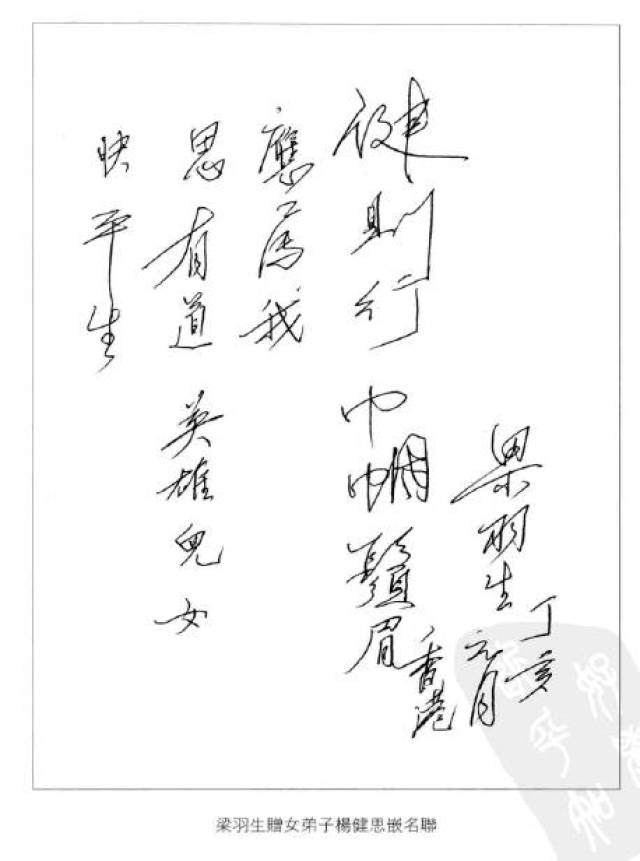 健則行 巾幗鬚眉
應為我
思有道 英雄兒女
快平生
梁羽生
丁亥
元月
香港
梁羽生贈女弟子楊健思嵌名聯